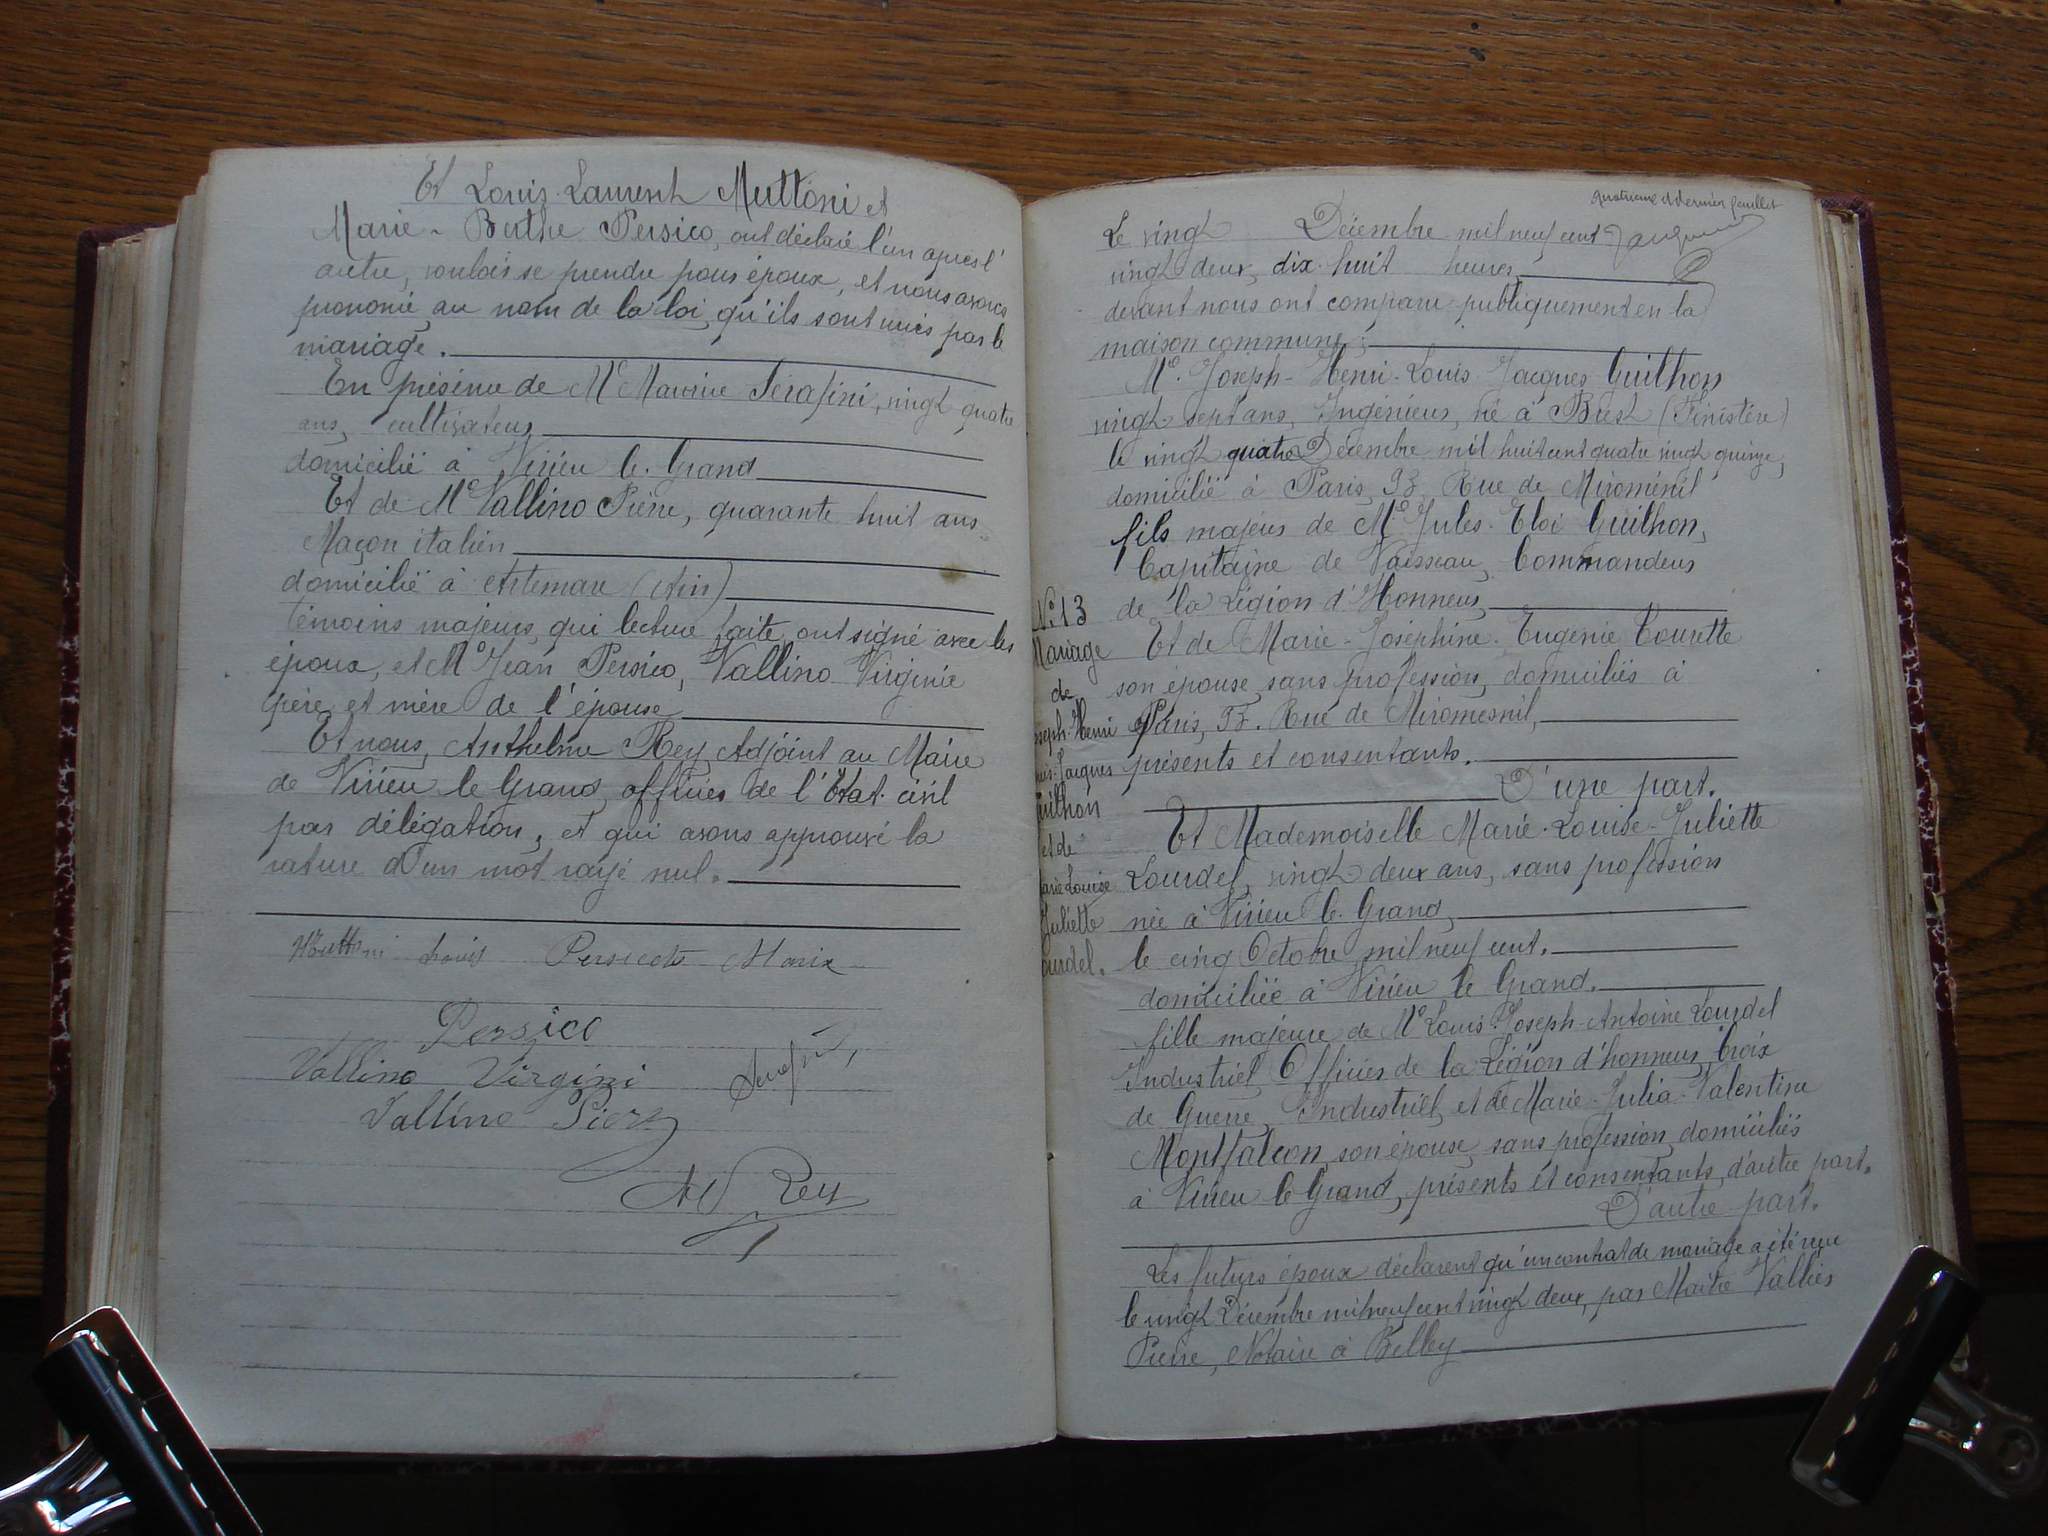 Et Louis-Laurent Muttoni et
Marie-Berthe Persico, ont déclaré l'un après l'
autre, vouloir se prendre pour époux, et nous avons
prononcé, au nom de la loi, qu'ils sont unis par le
mariage.
En présence de Mr Maurice Serafini, vingt quatre
ans, cultivateur
domicilié à Virieu le Grand
Et de Mr Vallino Pierre, quarante huit ans
Maçon italien
domicilié à Artemare (Ain)
témoins majeurs, qui lecture faite, ont signé avec les
époux, et Mr Jean Persico, Vallino Virginie
père et mère de l'épouse
Et nous, Anthelme Rey, Adjoint au Maire
de Virieu le Grand, officier de l'Etat-civil
par délégation, et qui avons approuvé la
rature d'un mot rayé nul.
Muttoni Louis Marie
Persico
Vallino Virgini Serafini
Vallino Piere
Rey
quatrième et dernier feuillet
Le vingt Décembre mil neuf cent
vingt deux, dix-huit heures
devant nous ont comparu publiquement en la
maison commune:
Mr. Joseph-Henri-Louis-Jacques Guilhon
vingt sept ans, Ingénieur, né à Brest (Finistère)
le vingt quatre Décembre mil huit cent quatre vingt quinze,
domicilié à Paris, Rue de Miroménil
fils majeur de Mr Jules-Eloi Guilhon,
Capitaine de Vaisseau, Commandeur
de la Légion d'Honneur,
Et de Marie-Joséphine-Eugénie Tourette
son épouse, sans profession, domiciliés à
Paris, Rue de Miromesnil,
présents et consentants.
D'une part.
Et Mademoiselle Marie-Louise-Juliette
Lourdel, vingt deux ans, sans profession
née à Virieu le Grand,
le cinq Octobre mil neuf cent.
domiciliée à Virieu le Grand.
fille majeure de Mr Louis-Joseph-Antoine Lourdel
Industriel, Officier de la Légion d'honneur, Croix
de Guerre, Industriel, et de Marie-Julia-Valentine
Montfalcon, son épouse, sans profession, domiciliés
à Virieu le Grand, présents et consentants, d'autre part.
D'autre part.
Les futurs époux déclarent qu'un contrat de mariage a été reçu
le vingt Décembre mil neuf cent vingt deux, par Maître Vallier
Pierre, Notaire à Belley
No. 13
Mariage
de
Joseph-Henri
Louis-Jacques
Guilhon
et de
Marie Louise
Juliette
Lourdel.